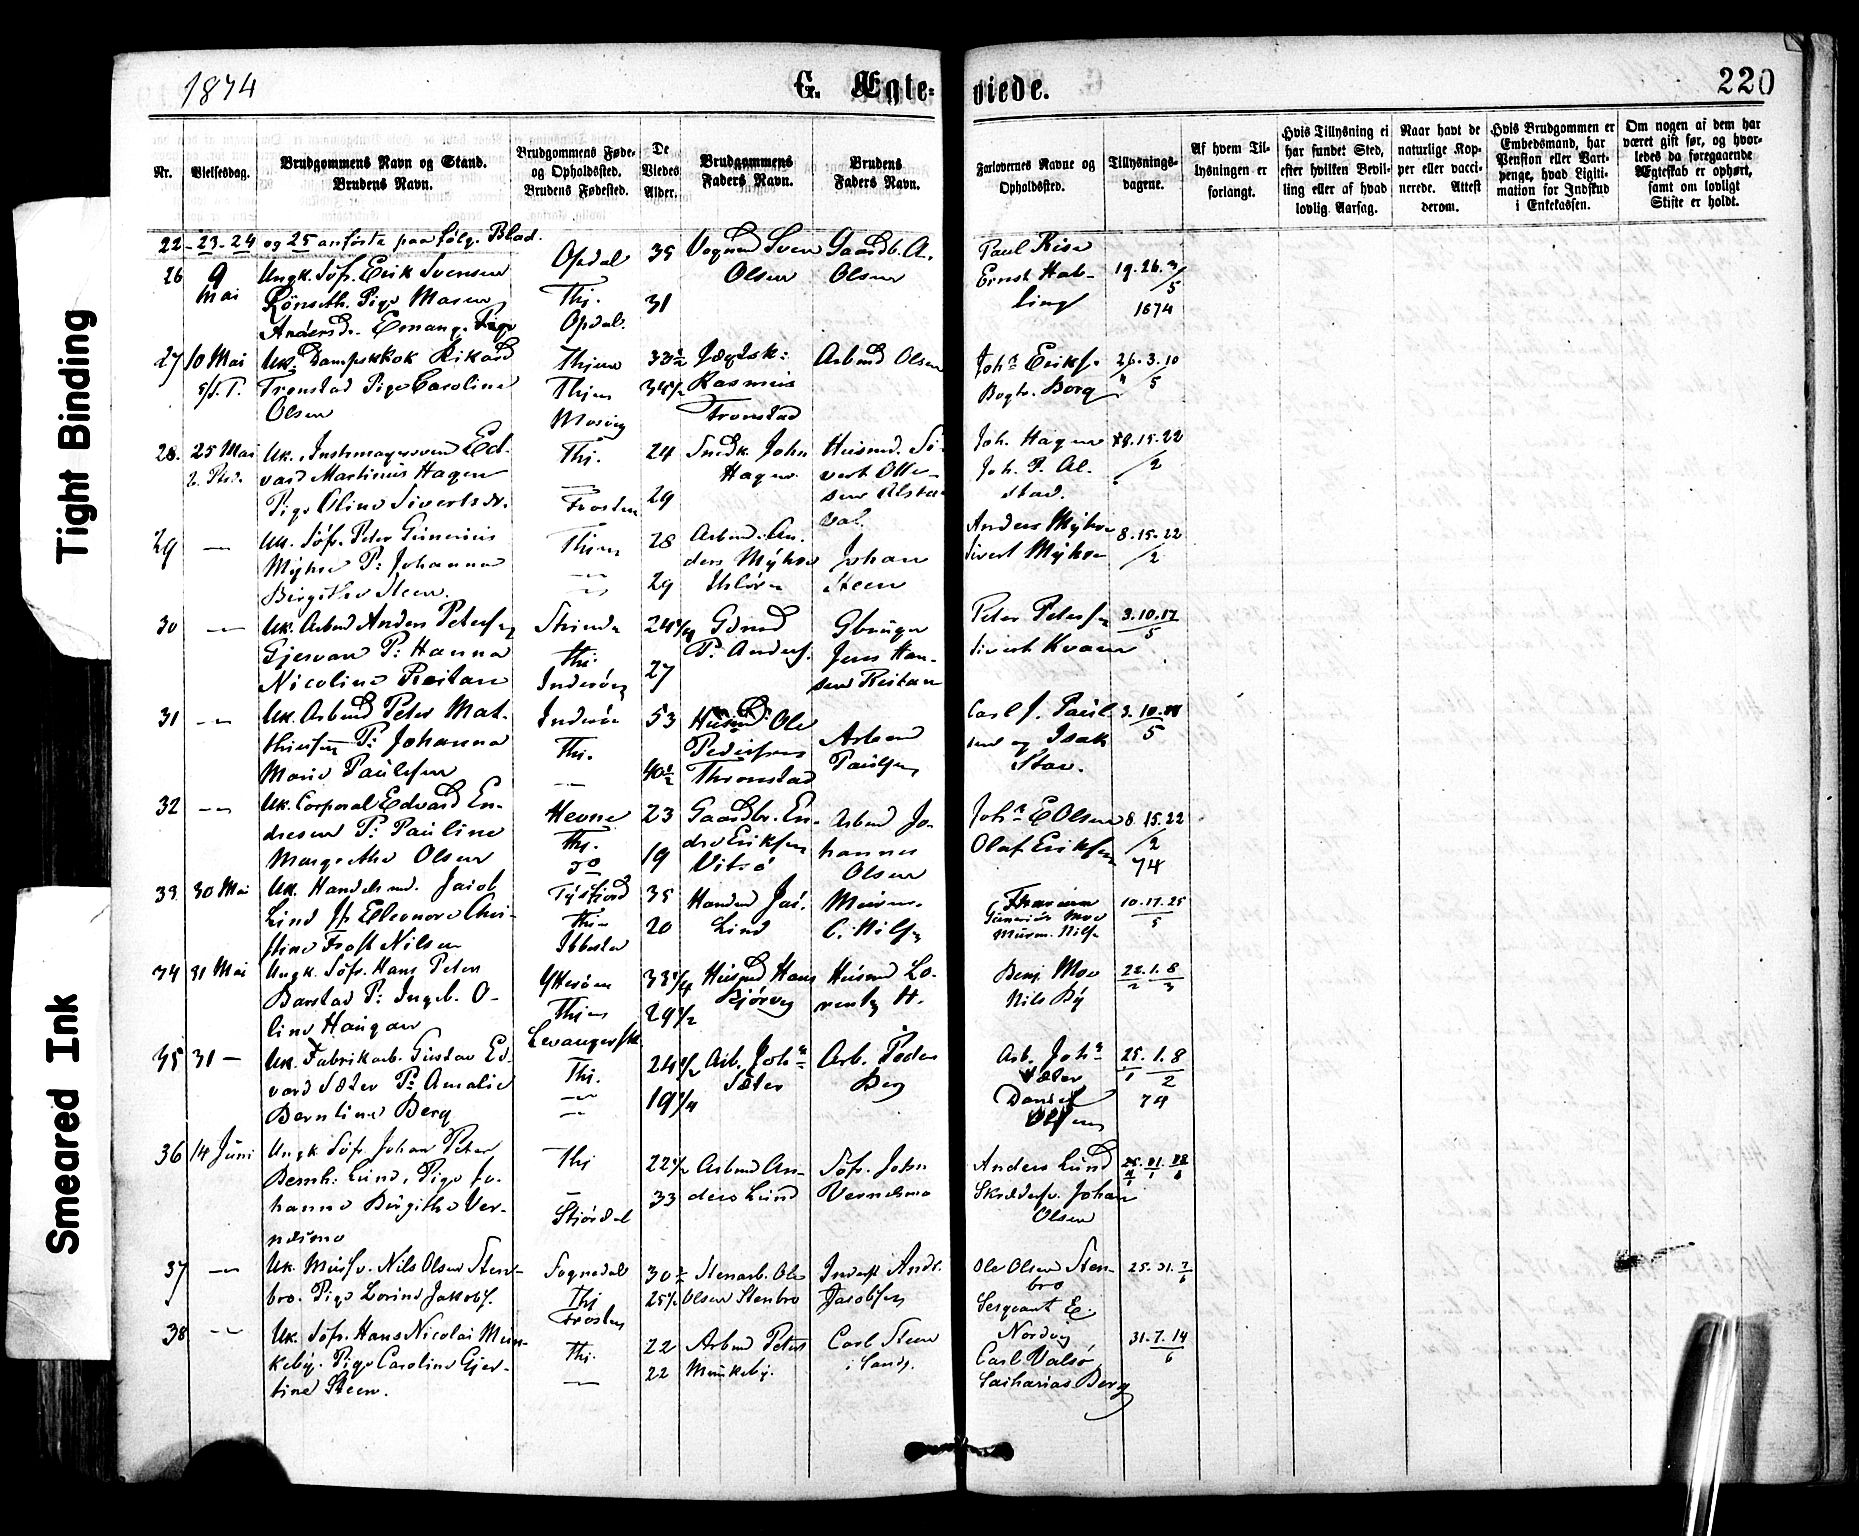 1874
G. Ægte-
viede.
220
Nr.
Vielsesdag.
Brudgommens Navn og Stand.
Brudens Navn.
Brudgommens Føde-
og Opholdssted.
Brudens Fødested.
De
Viedes
Alder.
Brudgommens
Faders Navn.
Brudens
Faders Navn.
Forlovernes Navne og
Opholdssted.
Tillysnings-
dagene.
Af hvem Til-
lysningen er
forlangt.
Hvis Tillysning ei
har fundet Sted,
efter hvilken Bevil-
ling eller af hvad
lovlig Aarsag.
Naar havt de
naturlige Kop-
per eller vacci-
nerede. Attest
derom.
Hvis Brudgommen er
Embedsmand, har
Pension eller Vart-
penge, hvad Ligiti-
mation for Indskud
i Enkekassen.
Om nogen af dem har
været gift før, og hvor-
ledes da foregaaende
Ægteskab er ophørt,
samt om lovligt
Skifte er holdt.
22-23-24 og 25 anførte paa følg. Blad.
26 9 Mai
Ungk. Söfr. Erik Svensen
Rönseth. Pige Maren
Andersdr.
Opdal
Thj.
Opdal.
35
31
Sven
Olsen
Gaardb. A.
Olsen
Paul Rise
Ernst Hab-
ling
19. 26. 3/5
1874
27 10 Mai
Uk. Dampskkok Rikard
Tronstad Pige Caroline
Olsen
Thjem
Thjem
Mosvig
33½
34½
Rasmus
Tronstad
Arbmd Olsen
Johs Eriks.
Bogtr. Borg
26. 3. 10
/5
28. 25 Mai
2. Pnd.
Uk. Instrmagersvend Ed-
vard Martinus Hagen
Pige Oline Sivertsdr.
Thj.
Frosten
24
29
Snedk. John
Hagen
Husmd. Si-
vert Olle-
Joh. Hagen
Joh. P. Al-
stad.
8. 15. 22
/2
29 —
Uk. Söfr. Peter Gunerius
Myhre P: Johanna
Birgithe Steen.
Thjem
28
29
Arbmd. An-
ders Myhre
Johan
Steen
Anders Myhre
Sivert Myhre
8. 15. 22
/2
30 —
Uk. Arbmd Anders Petersen
Gjervan P: Hanna
Nicoline Reitan
Strinda
Thj.
Inderöen
24¼
27
Gdmd
P. Anders.
Gbruger
Jens Han-
sen Reitan
Peter Petersen
Sivert Kvam
3. 10. 17
5
31 —
Uk. Arbmd Peter Mat-
thiesen P: Johanna
Marie Paulsen
Inderöe
Thj.
53
40½
Husmd Ole
Pedersen
Thronstad
Arbmd
Paulsen
Carl J. Paul-
sen og Isak
Stav.
3. 10. 17
5
32 —
Uk. Corporal Edvard En-
dresen P: Pauline
Margrethe Olsen
Hevne
Thj.
do
23
19
Gaardbr. En-
dre Eriksen
Vitsö
Arbmd Jo-
hannes
Olsen
Johs E Olsen
Olaf Eriksen
8. 15. 22
/2
74
33 30 Mai
Uk. Handelsmd. Jacob
Lind Jfr Elleonore Chri-
stine Frost Nilsen
Tysfjord
Thj.
Ibbestad
35
20
Handmd Jac.
Lind
Murm.
C. Nilsen
Gunerius Moe
Murm. Nils.
10. 17. 25
5
34 31 Mai
Ungk. Söfr. Hans Peter
Barstad P: Ingeb. O-
line Haugan
Ytterøen
Thjem
Levangerskg.
33¼
29½
Husmd Hans
Husmd Lo-
rentz H.
Benj. Moe
Nils By
22. 1. 8
2 3
35 31 —
Uk. Fabrikarb. Gustav Ed-
vard Sæter P: Amalie
Berntine Berg
Thj.
24½
19¼
Arb. Johs
Sæter
Arb. Peder
Berg
Arb. Johs
Sæter
Daniel
Olsen
25. 1. 8
1 2
74
36 14 Juni
Ungk Söfr Johan Peter
Bernh. Lund, Pige Jo-
hanne Birgithe Ver-
nesmo
Thj
Stjördal
22½
33
Arbmd An-
ders Lund
Söfr. John
Vernesmo
Anders Lund
Skrædersv. Johan
Olsen
37 —
Uk. Mursv. Nils Olsen Sten-
bro. Pige Lorine Jakobs.
Soknedal
Thj
Frosten
30½
25½
Stenarb. Ole
Olsen Stenbro
Inderst Andr.
Jacobsen
Ole Olsen Sten-
bro
Sergeant E.
Nordvig
25. 31. 7/6
38 —
Uk. Söfr. Hans Nicolai Mun-
keby. Pige Caroline Gjer-
tine Steen.
Thj.
22
22
Arbmd Peter
Munkeby.
Carl Steen
i Sand.
Carl Valsö
Sacharias Berg
31. 7. 14
6
Tight Binding
Smeared Ink